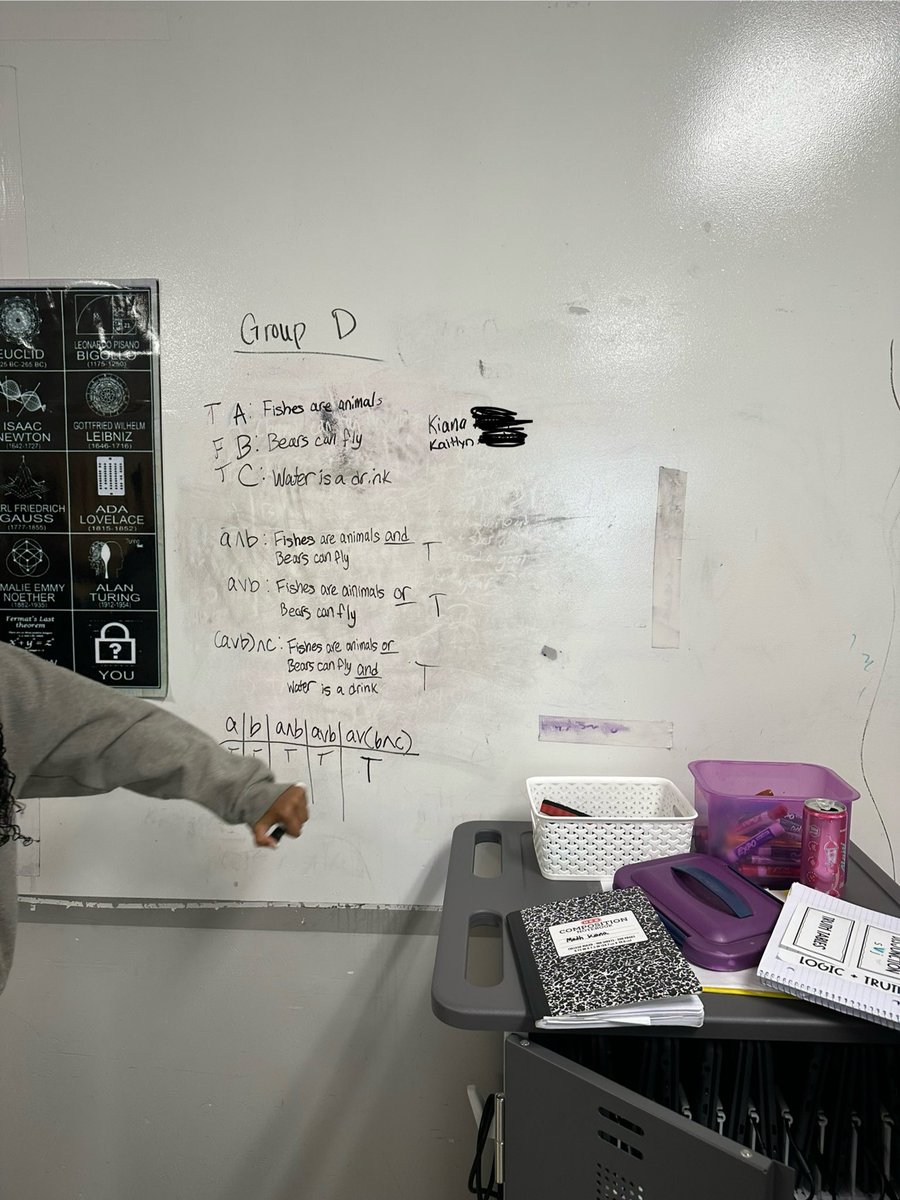 Group D
T A: Fishes are animals
F B: Bears can fly
T C: Water is a drink
Kiana
Kaitlyn
a∧b: Fishes are animals and T
Bears can fly
a∨b: Fishes are ainimals or T
Bears can fly
(a∨b)∧c: Fishes are animals or
Bears can fly and T
Water is a drink
a b a∧b a∨b a∨(b∧c)
T T T T T
EUCLID
LEONARDO PISANO
BIGOLLO
(1175-1250)
ISAAC
NEWTON
(1642-1727)
GOTTFRIED WILHELM
LEIBNIZ
(1646-1716)
RL FRIEDRICH
GAUSS
(1777-1855)
ADA
LOVELACE
(1815-1852)
MALIE EMMY
NOETHER
(1882-1935)
ALAN
TURING
(1912-1954)
Fermat's Last
theorem
YOU
COMPOSITION
Math Kiana
TRUTH TABLES
LOGIC + TRUTH